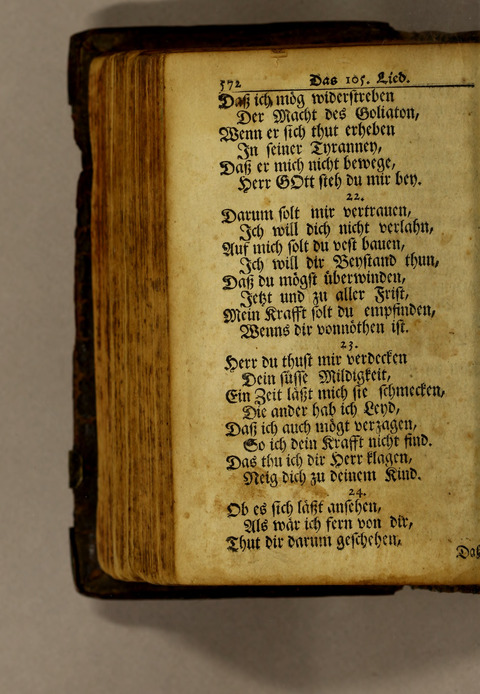 572 Das 105. Lied.
Daß ich mög widerstreben
Der Macht des Goliaton,
Wenn er sich thut erheben
In seiner Tyranney,
Daß er mich nicht bewege,
Herr GOtt steh du mir bey.
22.
Darum solt mir vertrauen,
Ich will dich nicht verlahn,
Auf mich solt du vest bauen,
Ich will dir Beystand thun,
Daß du mögst überwinden,
Jetzt und zu aller Frist,
Mein Krafft solt du empfinden,
Wenns dir vonnöthen ist.
23.
Herr du thust mir verdecken
Dein süsse Mildigkeit,
Ein Zeit läßt mich sie schmecken,
Die ander hab ich Leyd,
Daß ich auch mögt verzagen,
So ich dein Krafft nicht find.
Das thu ich dir Herr klagen,
Neig dich zu deinem Kind.
24.
Ob es sich läßt ansehen,
Als wär ich fern von dir,
Thut dir darum geschehen,
Daß